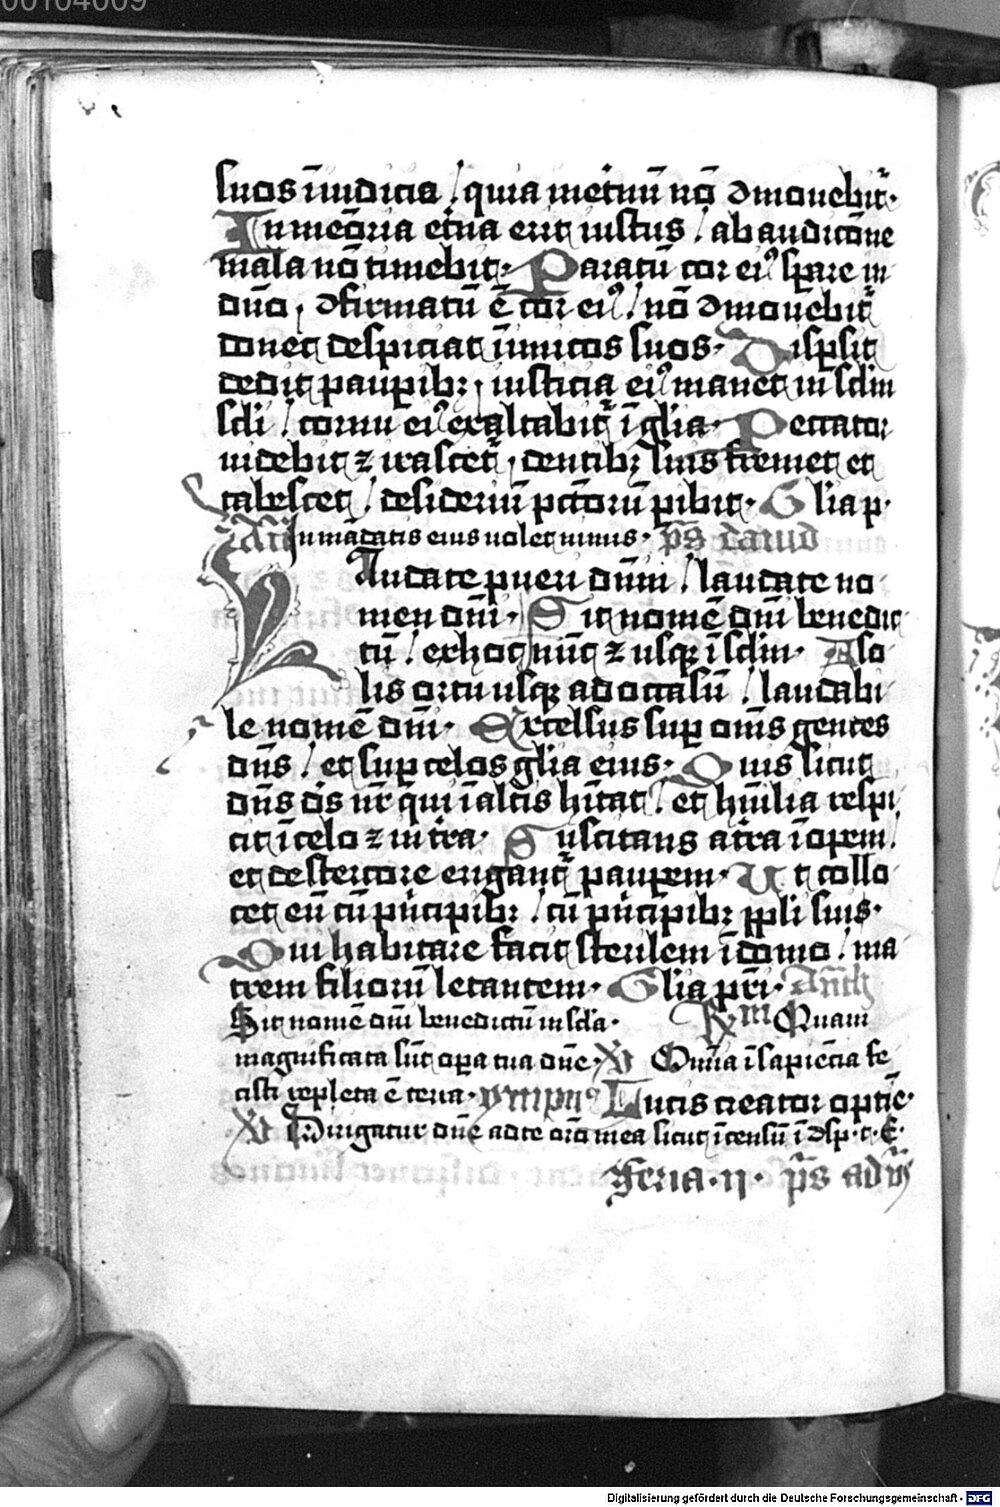 00104009
suos iudicia / quia ineternū nō ɔmouebit᷑·
In meōria etna erit iustus / ab audicōne
mala nō timebit· Paratū cor eiꝰ spare in
dnō, ɔfirmatū ē cor eiꝰ / nō ɔmouebit᷑
donec despiciat īimicos suos· Dispsit
dedit paupibꝫ, iusticia eiꝰ manet in sclm
scli / cornu eiꝰ exaltabit᷑ ī glia· Peccator
uidebit ⁊ irascet᷑, dentibꝫ suis fremet et
tabescet / desideriū pctōrū pibit· Glia p·
An̄ In mādatis eius uolet nimis· ps̄ dauid
Laudate pueri dnm̄ / laudate no
men dnī· Sit nomē dnī benedic
tū / ex hoc nūc ⁊ usqꝫ ī sclm· A so
lis ortu usqꝫ ad occasū / laudabi
le nomē dnī· Excelsus sup om̄s gentes
dn̄s / et sup celos glia eius· Quis sicut
dn̄s ds̄ nr̄ qui ī altis hītat / et hūilia respi
cit ī celo ⁊ in tra· Suscitans a tra īopem /
et de stercore erigens paupem· Ut collo
cet eū cū pⁱncipibꝫ / cū pⁱncipibꝫ ppli suis·
Qui habitare facit sterilem ī domo / ma
trem filiorū letantem· Glia pr̄i· Anth
Sit nomē dnī benedictū in scla· Rm Quam
magnificata sūt opa tua dne· V Omīa ī sapiēcia fe
cisti repleta ē terra· ympnꝰ Lucis creator optīe·
V Dirigatur dne ad te orō mea sicut īcensū ī ɔsp·t·E·
Feria·ii· ps̄ ad vs̄
Digitalisierung gefördert durch die Deutsche Forschungsgemeinschaft - DFG